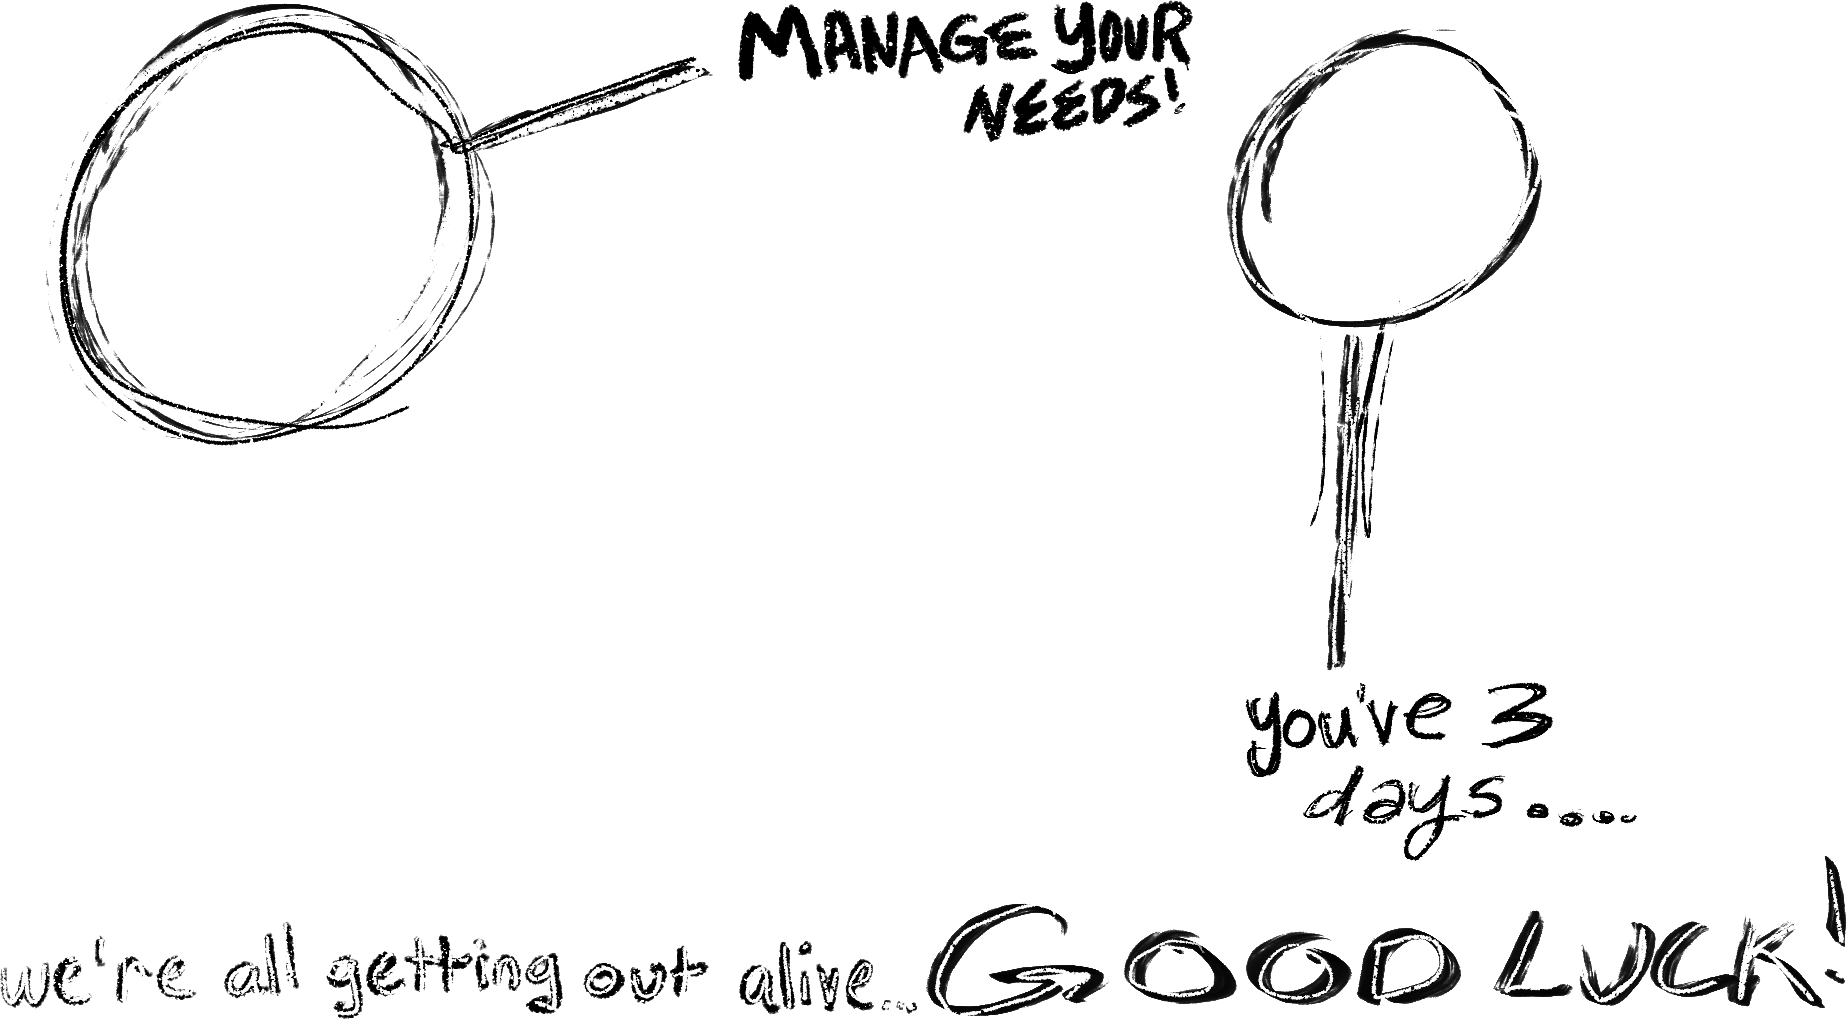 MANAGE YOUR
NEEDS!
you've 3
days....
we're all getting out alive... GOOD LUCK!